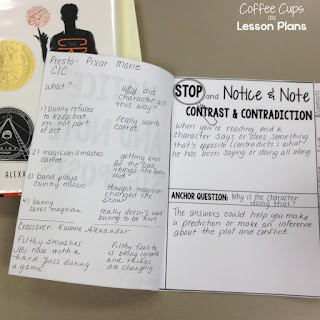 Coffee Cups
and
Lesson Plans
ALEXA
Presto- Pixar Movie
C|C
What?
Why did
character act
this way?
1) bunny refuses
to keep hat
on - not part
of act
really wants
carrot
2) magician smashes
carrot
getting even
for the bad
things the bunny
did
3) band plays
country music
thought magician
changed the
show
4) bunny
saves magician
really doesn't want
him to be hurt
Crossover- Kwame Alexander
Filthy smashes
JB's nose with a
hard pass during
a game
Filthy feels he
is being ignored
and things
are changing
STOP and Notice & Note
CONTRAST & CONTRADICTION
When you're reading and a
character says or does something
that's opposite (contradicts) what
he has been saying or doing all along
ANCHOR QUESTION: Why is the character
doing that?
The answers could help you make
a prediction or make an inference
about the plot and conflict.